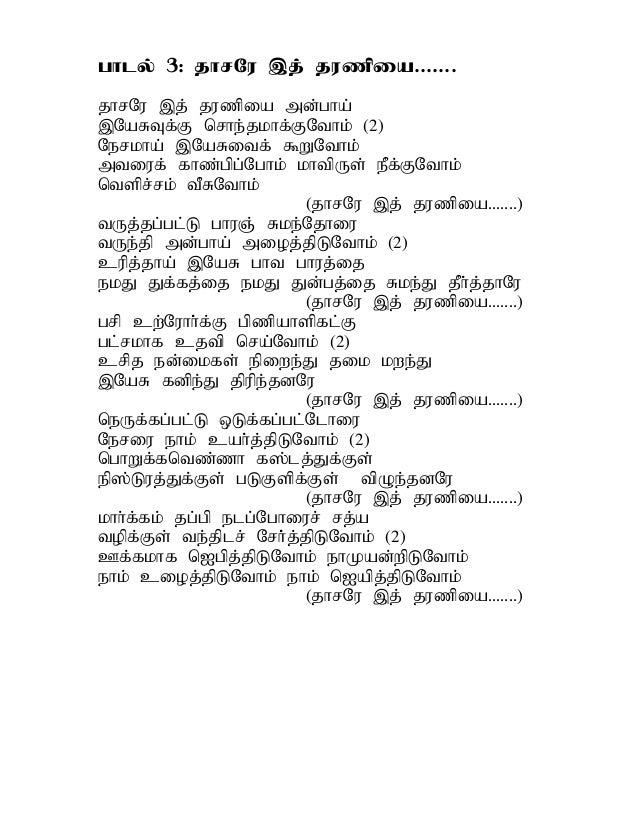 பாடல் 3: தாசரே இத் தரணியை.......
தாசரே இத் தரணியை அன்பாய்
இயேசுவுக்கு சொந்தமாக்குவோம் (2)
நேசமாய் இயேசுவைக் கூறுவோம்
அவரைக் காண்பிப்போம் மாவிருள் நீக்குவோம்
வெளிச்சம் வீசுவோம்
(தாசரே இத் தரணியை.......)
வருத்தப்பட்டு பாரஞ் சுமந்தோரை
வருந்தி அன்பாய் அழைத்திடுவோம் (2)
உரித்தாய் இயேசு பாவ பாரத்தை
நமது துக்கத்தை நமது துன்பத்தை சுமந்து தீர்த்தாரே
(தாசரே இத் தரணியை.......)
பசி உற்றோர்க்கு பிணியாளிகட்கு
பட்சமாக உதவி செய்வோம் (2)
உசித நன்மைகள் நிறைந்து தமை மறந்து
இயேசு கனிந்து திரிந்தனரே
(தாசரே இத் தரணியை.......)
நெருக்கப்பட்டு ஒடுக்கப்பட்டோரை
நேசரை நாம் உயர்த்திடுவோம் (2)
பொறுக்கவெண்ணா கஸ்டத்துக்குள்
நிஸ்டுரத்துக்குள் படுகுளிக்குள் விழுந்தனரே
(தாசரே இத் தரணியை.......)
மார்க்கம் தப்பி நடப்போரைச் சத்ய
வழிக்குள் வந்திடச் சேர்த்திடுவோம் (2)
ஊக்கமாக ஜெபித்திடுவோம் நாமுயன்றிடுவோம்
நாம் உழைத்திடுவோம் நாம் ஜெயித்திடுவோம்
(தாசரே இத் தரணியை.......)